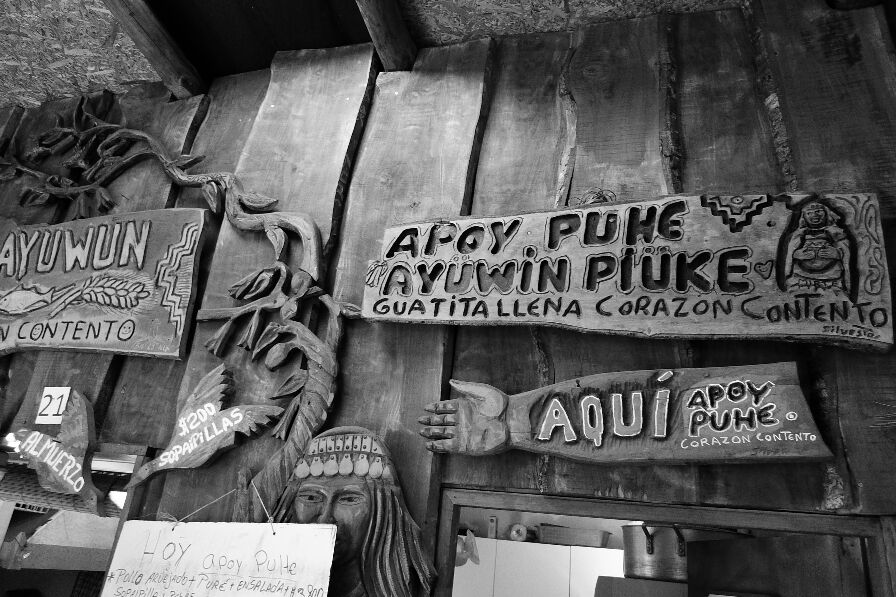 AYUWUN
N CONTENTO
APOY PUHE
AYÜWIN PIÜKE
GUATITA LLENA CORAZON CONTENTO
Silvestre
21
ALMUERZO
$1200
SOPAIPILLAS
AQUÍ APOY
PUHE
CORAZON CONTENTO
HOY APOY PUHE
+ PURÉ + ENSALADA +
SOPAIPILLA